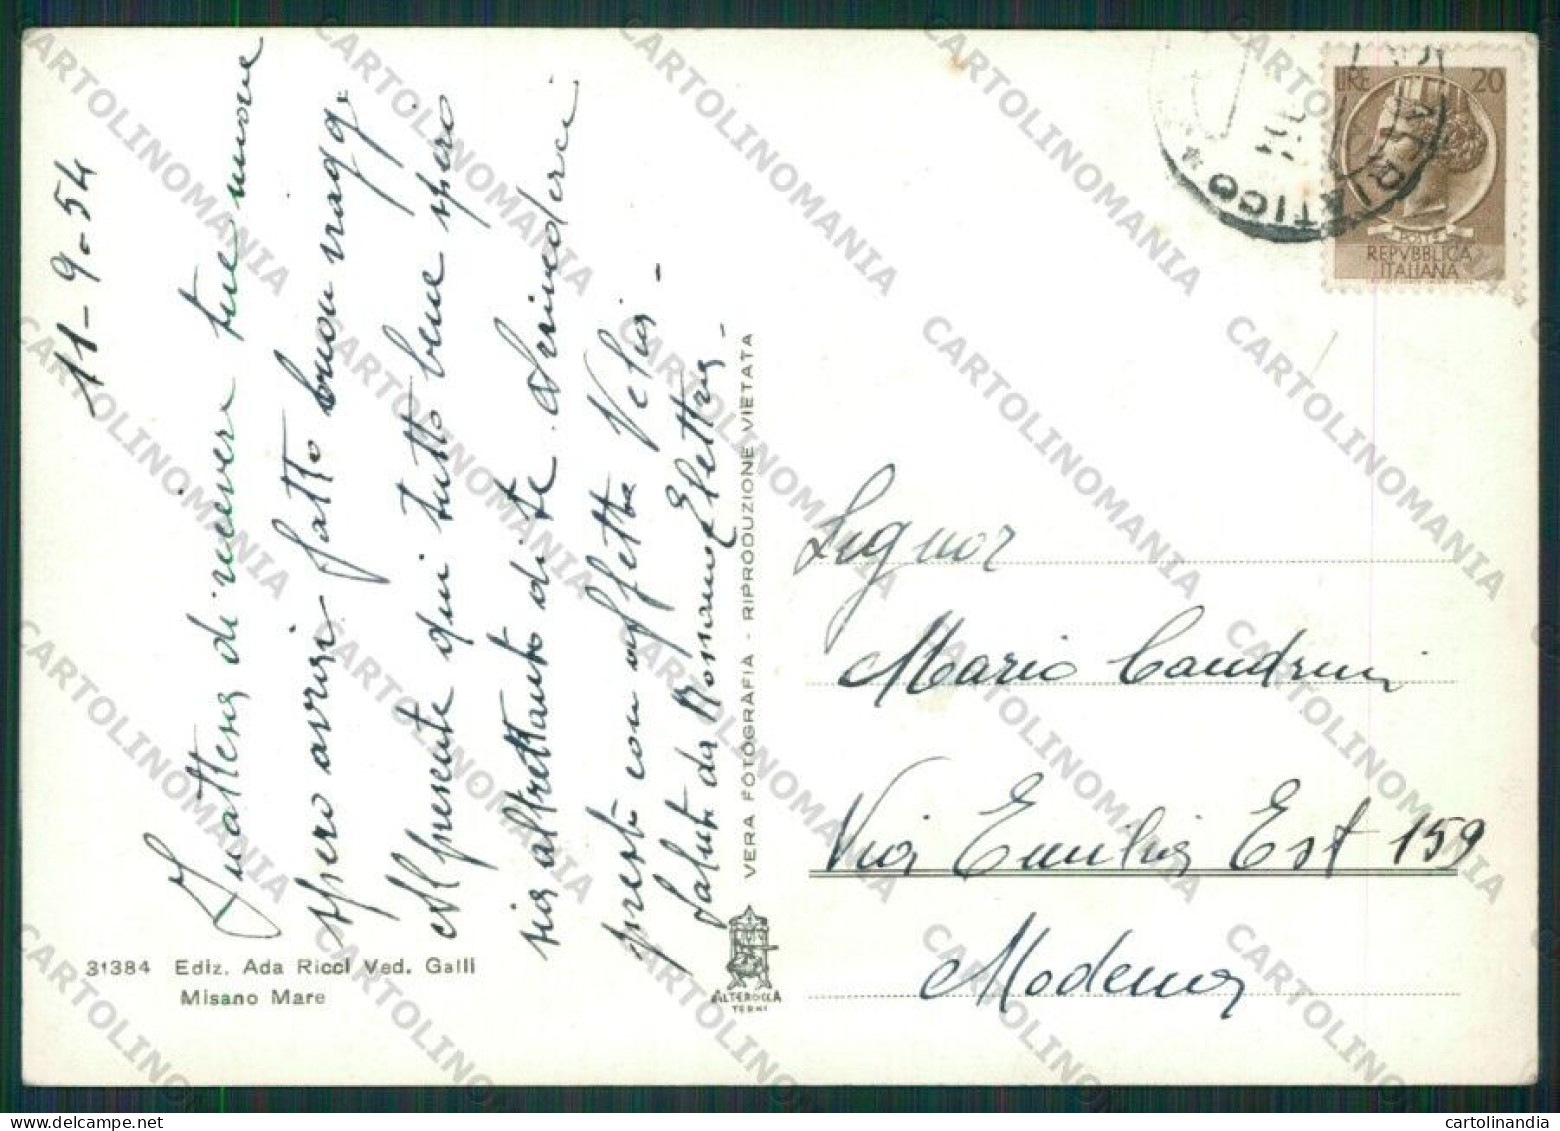 11-9-54
In attesa di ricevere tue nuove
spero avrai fatto buon viagg.
Al presente qui tutto bene spero
sia altrettanto di te. Arrivederci
presto con affetto Velia -
saluti da Romano Elettra -
VERA FOTOGRAFIA - RIPRODUZIONE VIETATA
31384 Ediz. Ada Ricci Ved. Galli
Misano Mare
ALTEROCCA
TERNI
ADRIATICO *
LIRE 20
POSTE
REPVBBLICA
ITALIANA
Signor
Mario Candrini
Via Emilia Est 159
Modena
CARTOLINOMANIA
cartolinandia